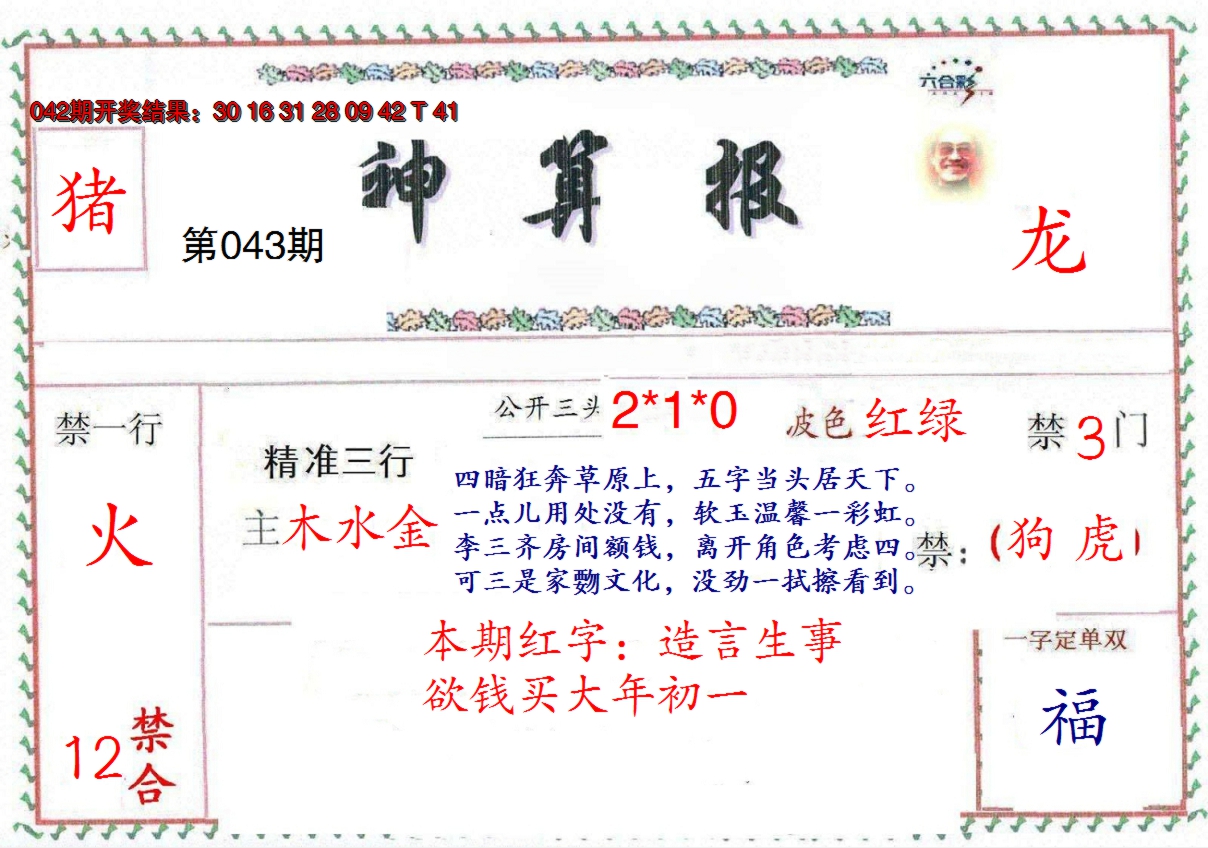 六合彩
042期开奖结果：30 16 31 28 09 42 T 41
神算报
猪
第043期
龙
禁一行
火
12
禁合
精准三行
主木水金
公开三头 2*1*0
波色 红绿
禁3门
四暗狂奔草原上，五字当头居天下。
一点儿用处没有，软玉温馨一彩虹。
李三齐房间额钱，离开角色考虑四。
可三是家覅文化，没劲一拭擦看到。
禁：（狗 虎）
本期红字：造言生事
欲钱买大年初一
一字定单双
福